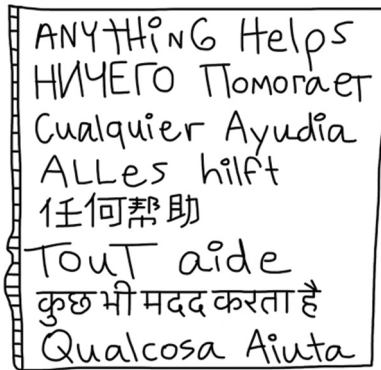 ANYtHiNG Helps
НИЧЕГО Помогает
Cualquier Ayudia
ALLes hilft
任何帮助
TouT aide
कुछ भी मदद करता है
Qualcosa Aiuta